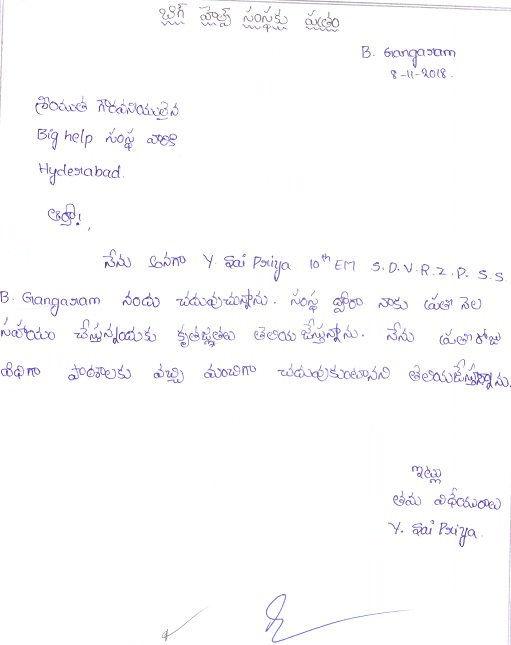 బిగ్ హెల్ప్ సంస్థకు పత్రం
B. Gangaram
8-11-2018.
శ్రీయుత గౌరవనియులైన
Big help సంస్థ వారికి
Hyderabad.
ఆర్యా!,
నేను అనగా Y. Sai Priya 10th EM S.D.V.R.Z.P.S.S
B. Gangaram నందు చదువుచున్నాను. సంస్థ ద్వారా నాకు ప్రతి నెల
సహాయం చేస్తున్నందుకు కృతజ్ఞతలు తెలియజేస్తున్నాను. నేను ప్రతిరోజు
విధిగా పాఠశాలకు వచ్చి మంచిగా చదువుకుంటానని తెలియజేస్తున్నాను.
ఇట్లు
తమ విధేయురాలు
Y. Sai Priya.